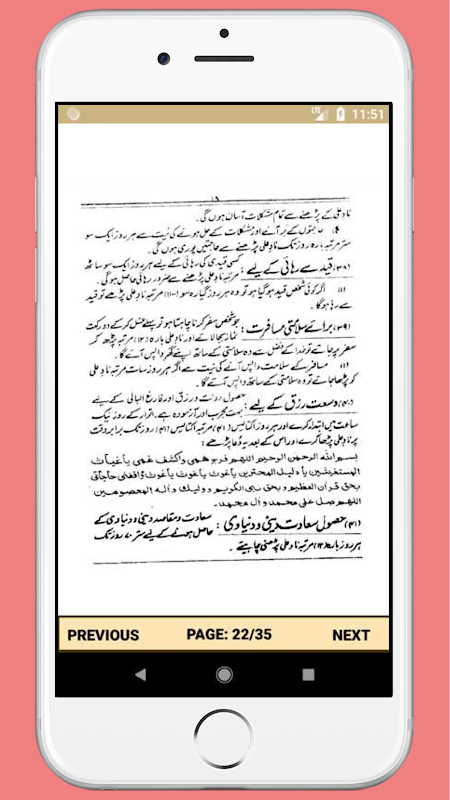 LTE 11:51
۱۸
ناد علی کے پڑھنے سے تمام مشکلات آسان ہوں گی۔
حاجتوں کے بر آنے اور مشکلات کے حل ہونے کی نیت سے ہر روز ایک سو
ستر مرتبہ بارہ روز تک ناد علی پڑھنے سے حاجتیں پوری ہوں گی۔
(۳۸) قید سے رہائی کے لیے : کسی قیدی کی رہائی کے لیے ہر روز ایک سو ساٹھ
مرتبہ ناد علی پڑھنے سے ضرور رہائی حاصل ہوگی۔
اگر کوئی شخص قید ہوگیا ہو تو وہ ہر روز گیارہ سو (۱۱۰۰) مرتبہ ناد علی پڑھے تو قید
سے رہا ہوگا۔
(۳۹) برائے سلامتی مسافرت : جو شخص سفر کرنا چاہتا ہو تو پہلے غسل کر کے دو رکعت
نماز بجا لائے اور بارہ (۱۲) مرتبہ پڑھ کر
سفر پر جائے تو خدا کے فضل سے وہ سلامتی کے ساتھ اپنے گھر واپس آئے گا۔
مسافر کے سلامت واپس آنے کی نیت سے اگر ہر روز سات مرتبہ ناد علی
کو پڑھا جائے تو وہ سلامتی کے ساتھ واپس آئے گا۔
(۴۰) وسعت رزق کے لیے : حصول دولت و رزق اور فارغ البالی کے لیے
بہت مجرب اور آزمودہ ہے۔ اتوار کے روز نیک
ساعت میں ابتدا کرے اور ہر روز اکتالیس (۴۱) مرتبہ اکتالیس (۴۱) روز تک برابر وقت
پر ناد علی پڑھا کرے اور اس کے بعد یہ دعا پڑھے :
بسم اللہ الرحمن الرحیم اللہم فرج ہمی واکشف غمی یا غیاث
المستغیثین یا دلیل المتحیرین یا غوث یا غوث یا غوث یا غوث واقضنی حاجاتی
بحق قرآن العظیم و بحق نبی الکریم و ولیک و آلہ المعصومین
اللہم صل علی محمد و آل محمد۔
(۴۱) حصول سعادت دینی و دنیاوی : سعادت و مقاصد دینی و دنیاوی کے
حاصل ہونے کے لیے ستر ۷۰ روز تک
ہر روز بارہ (۱۲) مرتبہ ناد علی پڑھنی چاہیئے۔
PREVIOUS PAGE: 22/35 NEXT